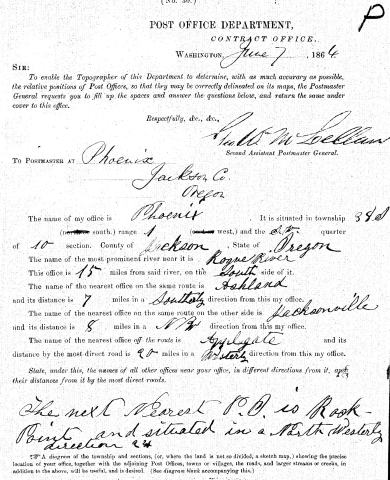 (No. 30.)
P
POST OFFICE DEPARTMENT,
CONTRACT OFFICE,
WASHINGTON, June 7 1864
SIR:
To enable the Topographer of this Department to determine, with as much accuracy as possible,
the relative positions of Post Offices, so that they may be correctly delineated on its maps, the Postmaster
General requests you to fill up the spaces and answer the questions below, and return the same under
cover to this office.
Respectfully, &c., &c.,
Geo. W. McLellan
Second Assistant Postmaster General.
TO POSTMASTER AT Phoenix
Jackson Co.
Oregon
The name of my office is Phoenix . It is situated in township 38 S
south.) range 1 west,) and the quarter
of 10 section. County of Jackson , State of Oregon
The name of the most prominent river near it is Rogue River
This office is 15 miles from said river, on the South side of it.
The name of the nearest office on the same route is Ashland
and its distance is 7 miles in a Southerly direction from this my office.
The name of the nearest office on the same route on the other side is Jacksonville
and its distance is 8 miles in a N W direction from this my office.
The name of the nearest office off the route is Applegate and its
distance by the most direct road is 20 miles in a Westerly direction from this my office.
State, under this, the names of all other offices near your office, in different directions from it, and
their distances from it by the most direct roads.
The next Nearest P.O. is Rock
Point and situated in a North Westerly
direction 24
A diagram of the township and sections, (or, where the land is not so divided, a sketch map,) showing the precise
location of your office, together with the adjoining Post Offices, towns or villages, the roads, and larger streams or creeks,
in addition to the above, will be useful, and is desired. (See diagram blank accompanying this.)